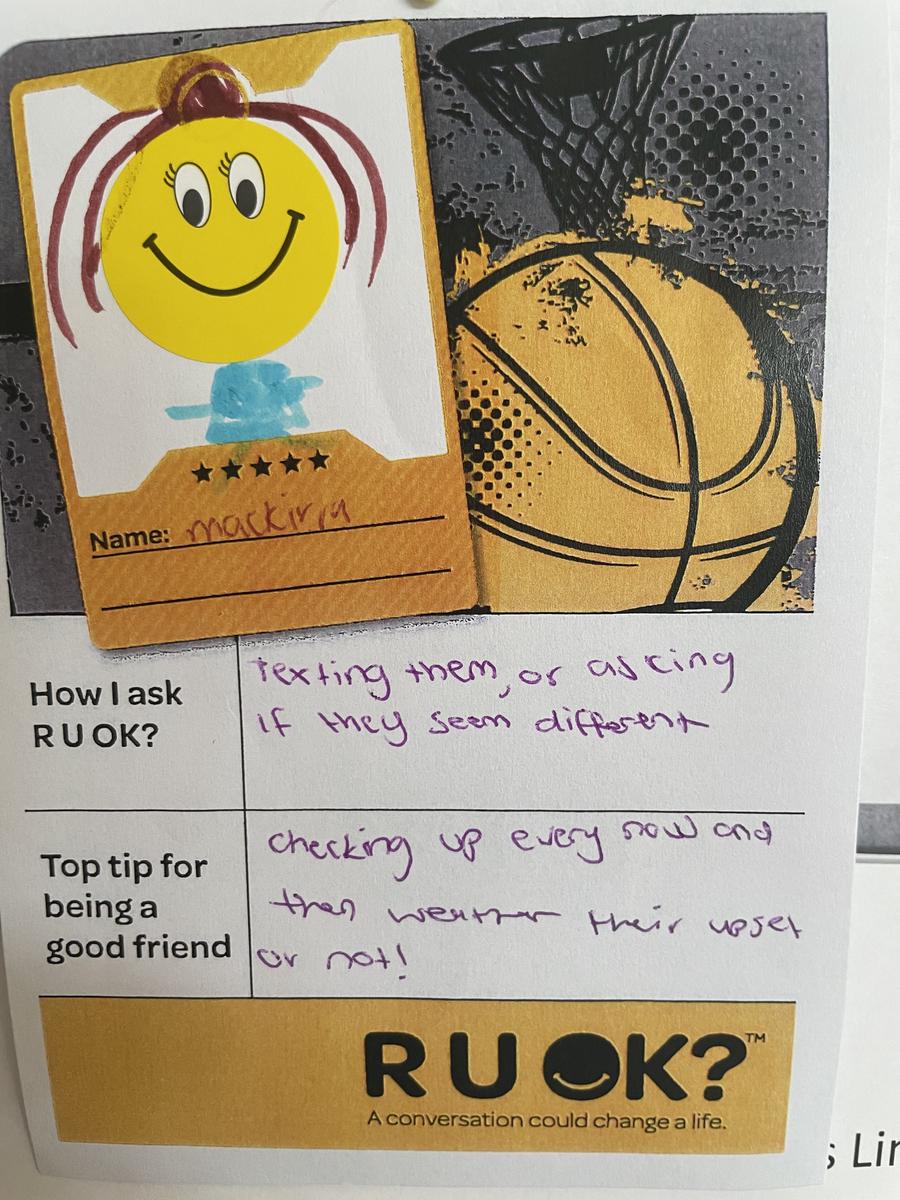 Name: mackirra
How I ask
R U OK?
Texting them, or asking
if they seem different
Top tip for
being a
good friend
Checking up every now and
then weather their upset
or not!
R U OK?™
A conversation could change a life.
s Lin